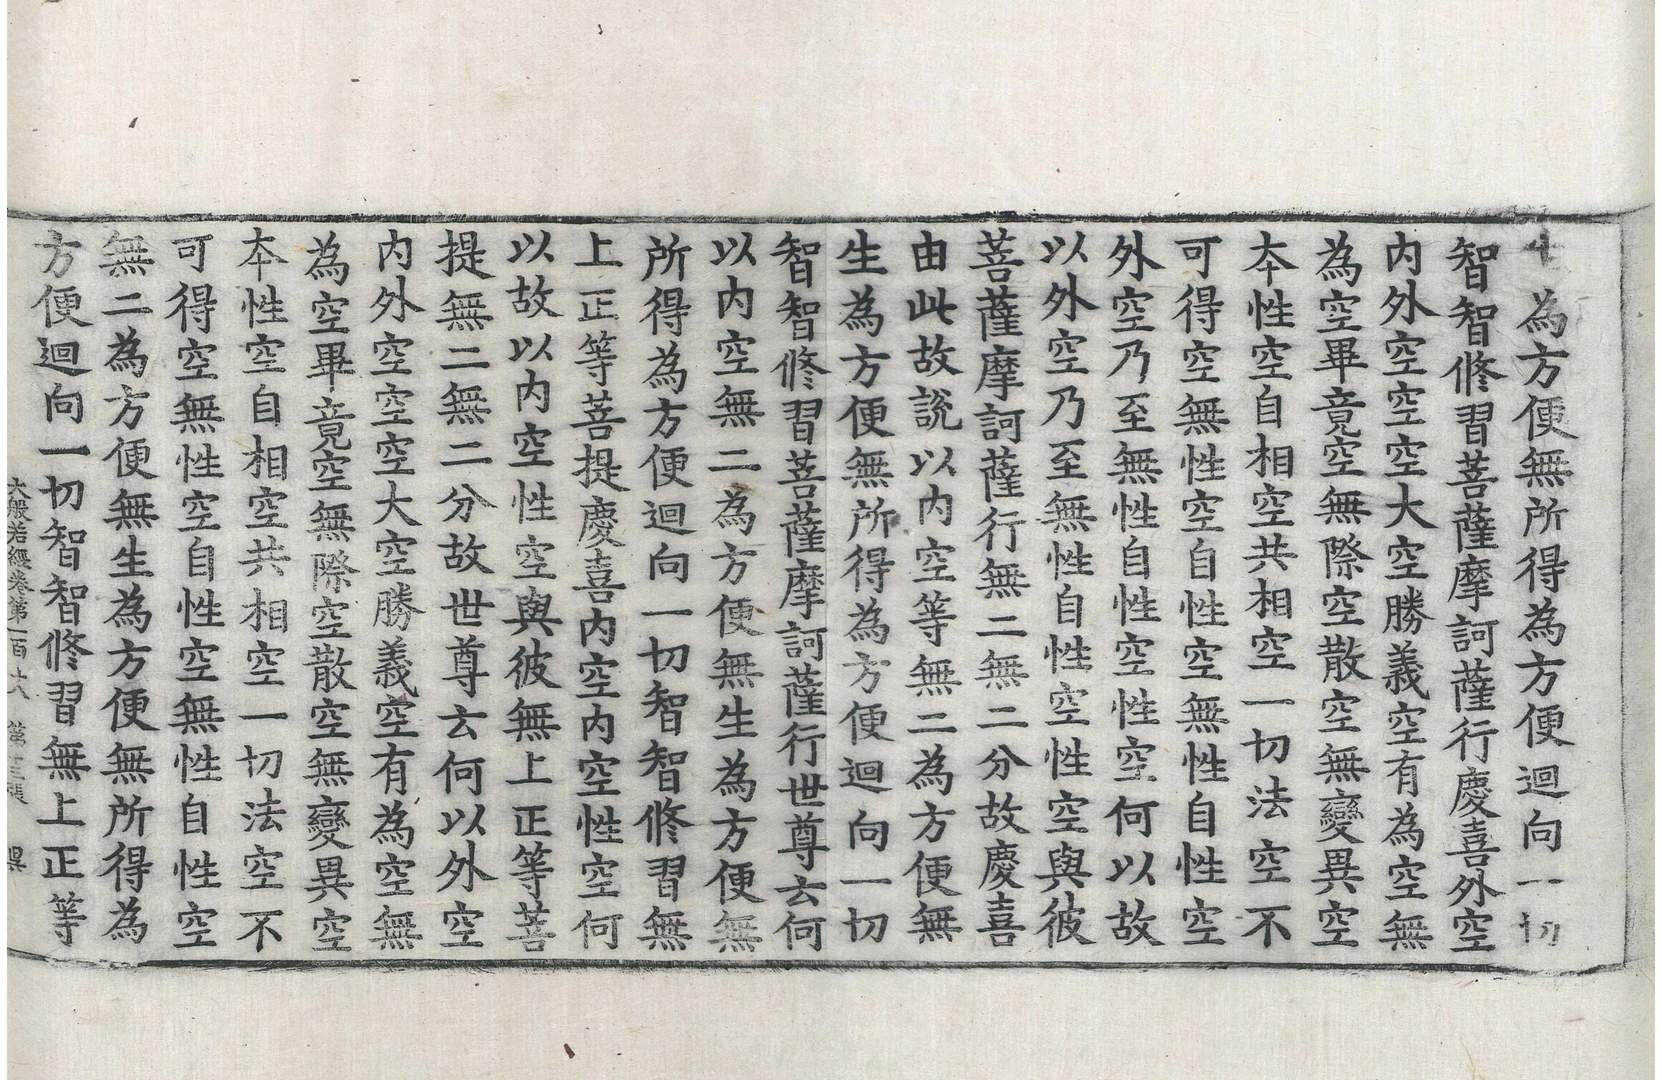 為方便無所得為方便迴向一切
智智修習菩薩摩訶薩行慶喜外空
内外空空空大空勝義空有為空無
為空畢竟空無際空散空無變異空
本性空自相空共相空一切法空不
可得空無性空自性空無性自性空
外空乃至無性自性空性空何以故
以外空乃至無性自性空性空與彼
菩薩摩訶薩行無二無二分故慶喜
由此故說以内空等無二為方便無
生為方便無所得為方便迴向一切
智智修習菩薩摩訶薩行世尊云何
以内空無二為方便無生為方便無
所得為方便迴向一切智智修習無
上正等菩提慶喜内空内空性空何
以故以内空性空與彼無上正等菩
提無二無二分故世尊云何以外空
内外空空空大空勝義空有為空無
為空畢竟空無際空散空無變異空
本性空自相空共相空一切法空不
可得空無性空自性空無性自性空
無二為方便無生為方便無所得為
方便迴向一切智智修習無上正等
大般若經卷第一百十六 第十三張 昃